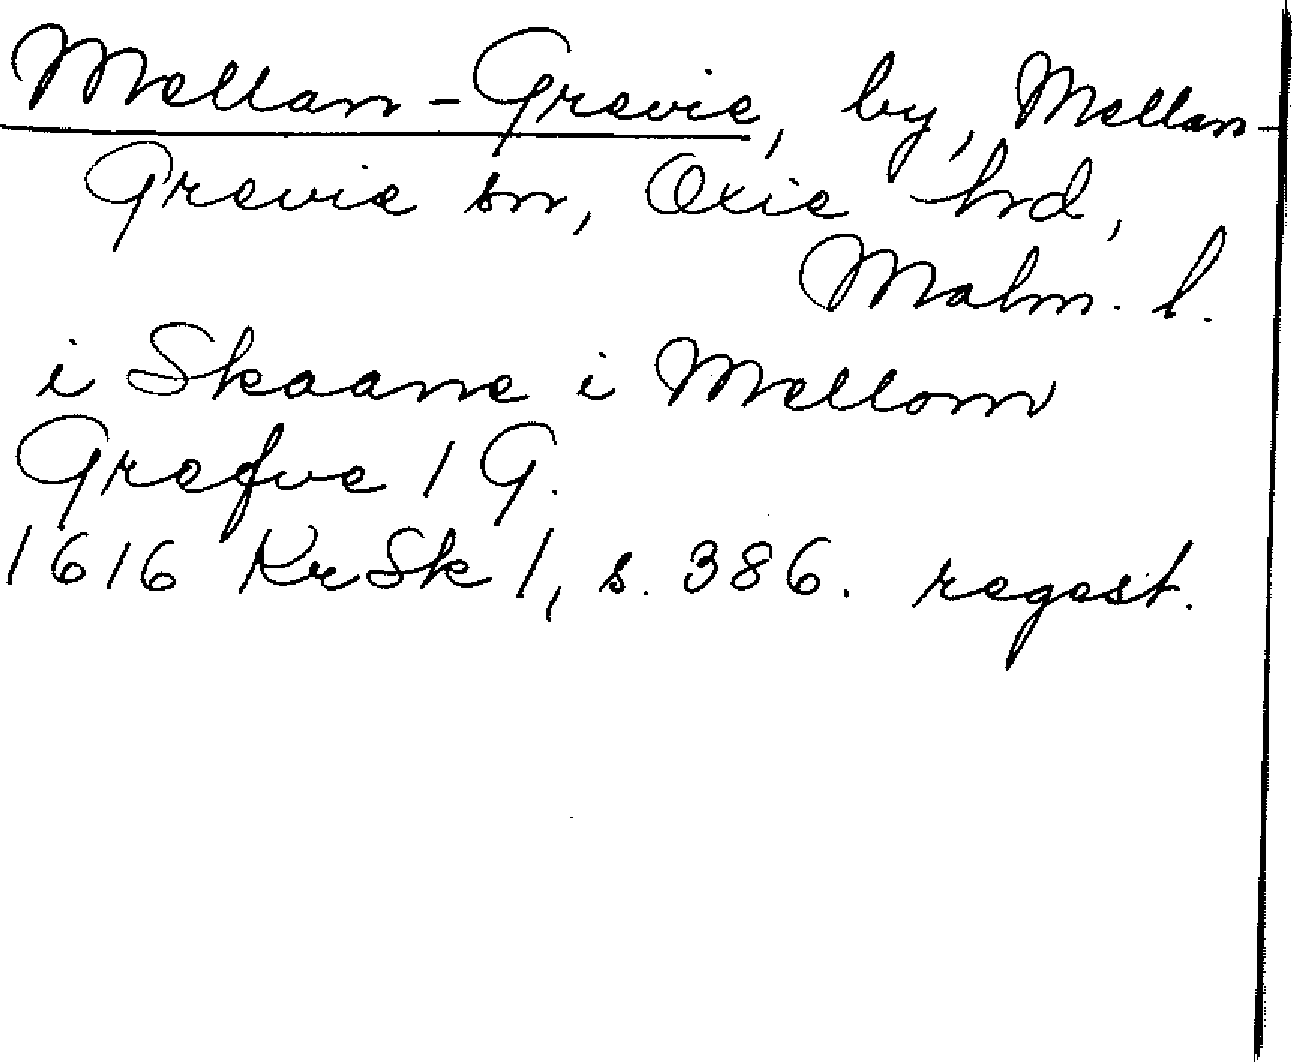 Mellan-Grevie, by, Mellan-
Grevie sn, Oxie hrd,
Malm. l.
i Skaane i Mellom
Grefve 1 G.
1616 KrSk 1, s. 386. regest.